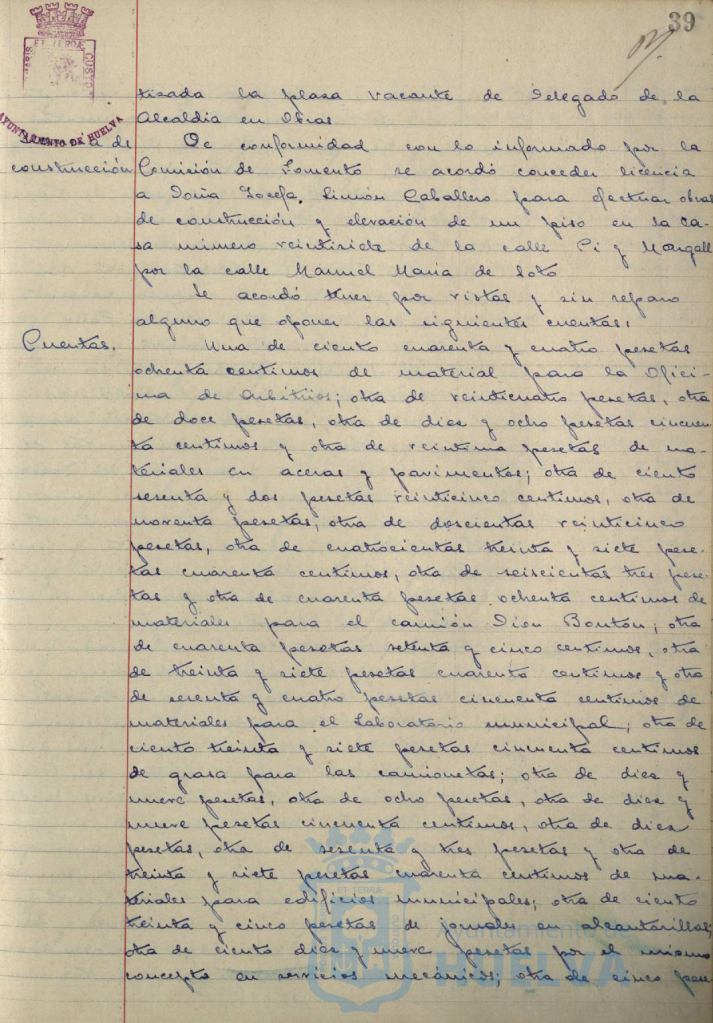 39
tizada la plaza vacante de Delegado de la
AYUNTAMIENTO DE HUELVA
Alcaldia en Obras
a de
De conformidad con lo informado por la
construcción
Comisión de Fomento se acordó conceder licencia
a Doña Josefa Limón Caballero para efectuar obras
de construcción y elevación de un piso en la ca-
sa número veintisiete de la calle Pi y Margall
por la calle Manuel Maria de Soto
Se acordó tener por vistas y sin reparo
alguno que oponer las siguientes cuentas:
Cuentas.
Una de ciento cuarenta y cuatro pesetas
ochenta centimos de material para la Ofici-
na de Arbitrios; otra de veinticuatro pesetas, otra
de doce pesetas, otra de diez y ocho pesetas cincuen-
ta centimos y otra de veintiuna pesetas de ma-
teriales en aceras y pavimentos; otra de ciento
sesenta y dos pesetas veinticinco centimos, otra de
noventa pesetas, otra de doscientas veinticinco
pesetas, otra de cuatrocientas treinta y siete pese-
tas cuarenta centimos, otra de seiscientas tres pese-
tas y otra de cuarenta pesetas ochenta centimos de
materiales para el camión Dion Bouton; otra
de cuarenta pesetas setenta y cinco centimos, otra
de treinta y siete pesetas cuarenta centimos y otra
de sesenta y cuatro pesetas cincuenta centimos de
materiales para el Laboratorio municipal; otra de
ciento treinta y siete pesetas cincuenta centimos
de grasa para las camionetas; otra de diez y
nueve pesetas, otra de ocho pesetas, otra de diez y
nueve pesetas cincuenta centimos, otra de diez
pesetas, otra de sesenta y tres pesetas y otra de
treinta y siete pesetas cuarenta centimos de ma-
teriales para edificios municipales; otra de ciento
treinta y cinco pesetas de jornales en alcantarillas;
otra de ciento diez y nueve pesetas por el mismo
concepto en servicios mecánicos; otra de cinco pese-
Ayuntamiento
HUELVA